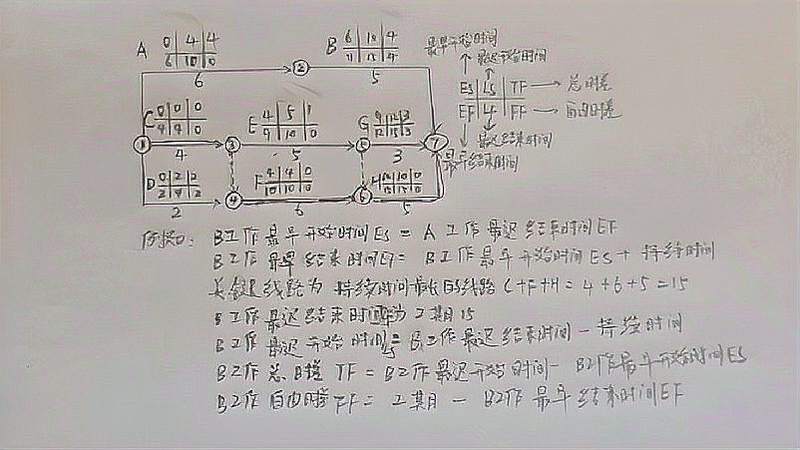 A 0 4 4
6 10 0
6
②
B 6 10 4
11 15 4
5
最早开始时间
最迟开始时间
ES LS TF → 总时差
EF LF FF → 自由时差
最迟结束时间
最早结束时间
C 0 0 0
4 4 0
4
①
③
E 4 5 1
9 10 0
5
⑤
G 9 12 3
12 15 3
3
⑦
D 0 2 2
2 4 2
2
④
F 4 4 0
10 10 0
6
⑥
H 10 10 0
15 15 0
5
例如: B工作最早开始时间ES = A工作最迟结束时间EF
B工作最早结束时间EF = B工作最早开始时间ES + 持续时间
关键线路为持续时间最长的线路 C+F+H = 4+6+5 = 15
B工作最迟结束时间为工期15
B工作最迟开始时间LS = B工作最迟结束时间 - 持续时间
B工作总时差 TF = B工作最迟开始时间 - B工作最早开始时间ES
B工作自由时差FF = 工期 - B工作最早结束时间EF